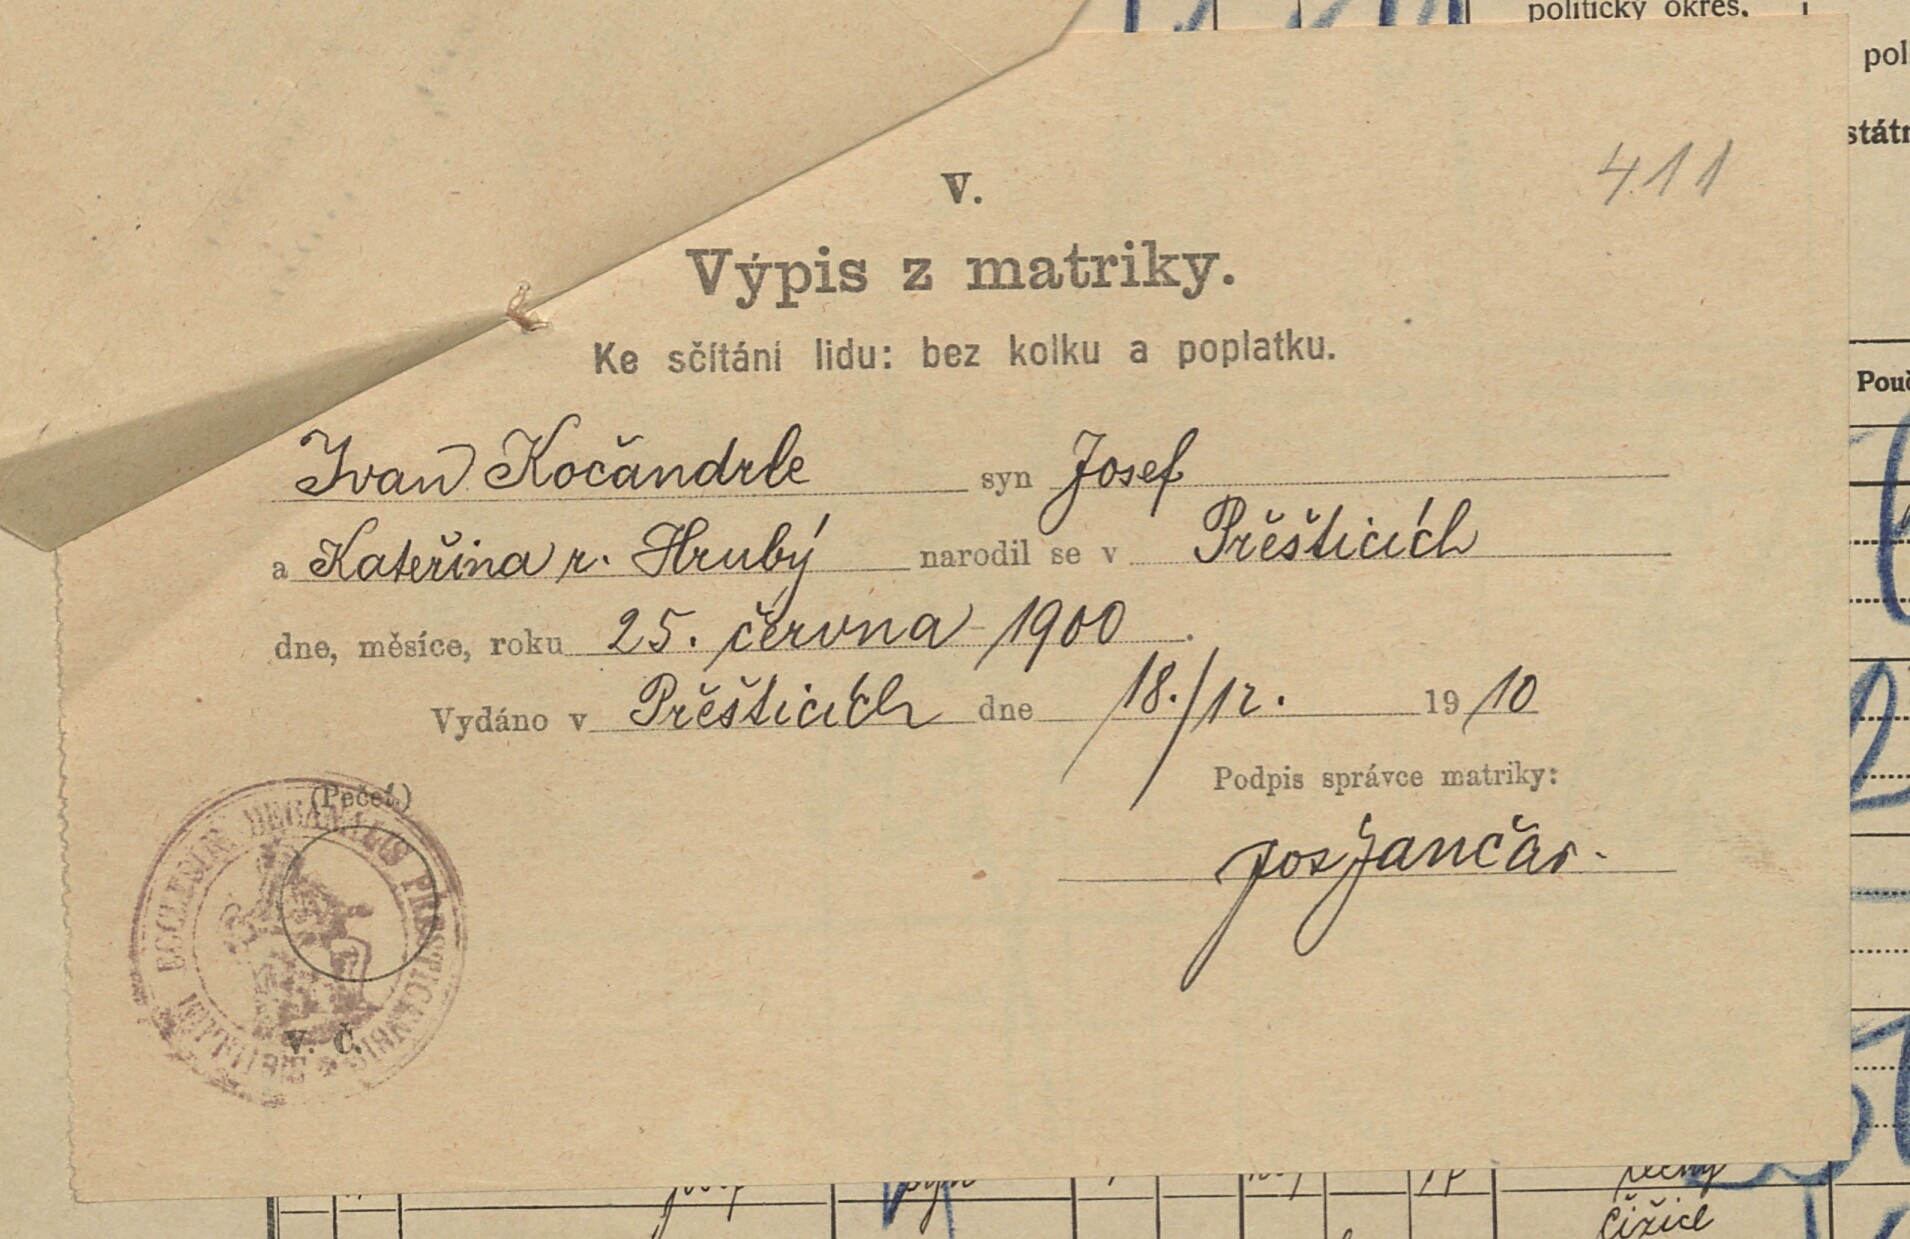 politický okres.
pol
státn
411
V.
Výpis z matriky.
Ke sčítání lidu: bez kolku a poplatku.
Pouč
Ivan Kočandrle syn Josef
a Kateřina r. Hrubý narodil se v Přěšticích
dne, měsíce, roku 25. června 1900.
Vydáno v Přěšticích dne 18./12. 1910
Podpis správce matriky:
(Pečeť.)
Jos Jančar.
DECANALIS PŘESTICENSIS
V. Č.
syn
Čižice